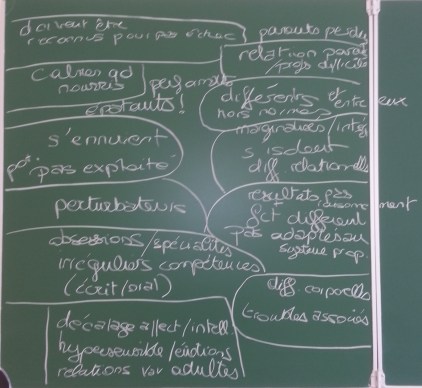 doivent être
reconnus pour pas échec
parents perdus
relation parents
/profs difficiles
calmes qd
nourris
performants
épatants!
différents et entre eux
hors normes
marginalisés / intég
s'isolent
diff relationnelles
s'ennuient
pas exploité
perturbateurs
résultats pas
fct différent
pas adaptés au
système prop.
obsessions/spécialités
irréguliers compétences
(écrit/oral)
diff. corporelles
troubles associés
décalage affect/intell
hypersensible/émotions
relations var adultes